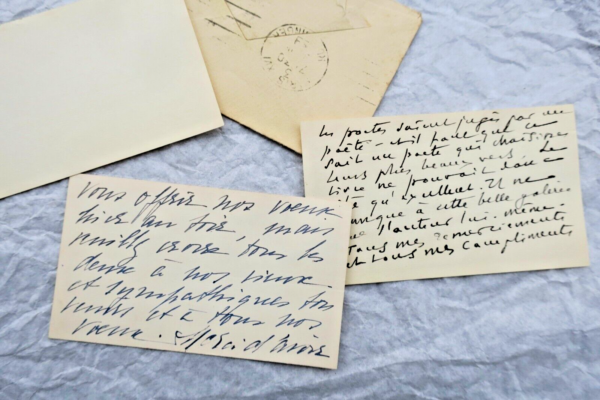 vous offrir nos vœux
hier au soir, mais
veuillez croire tous les
deux à nos vieux
et sympathiques sou
venirs et à tous nos
vœux.
Les poètes soient jugés par un
poète - et il faut que ce
soit un poète qui choisisse
leurs plus beaux vers. Le
livre ne pouvait donc
qui excellent. Il ne
manque à cette belle galerie
que l'auteur lui-même.
Tous mes remerciements
et tous mes compliments